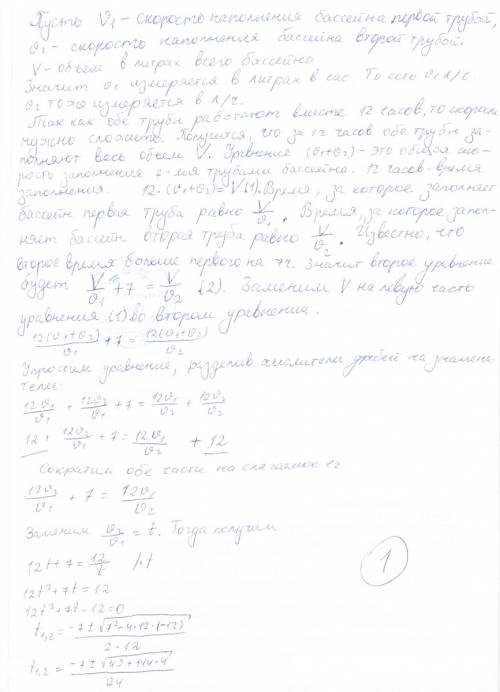 Пусть υ₁ - скорость наполнения бассейна первой трубой,
υ₂ - скорость наполнения бассейна второй трубой.
V - объем в литрах всего бассейна
Значит υ₁ измеряется в литрах в час. То есть υ₁ л/ч.
υ₂ тоже измеряется в л/ч.
Так как обе трубы работают вместе 12 часов, то скорости
нужно сложить. Получится, что за 12 часов обе трубы за-
полняют весь объем V. Уравнение (υ₁+υ₂) - это общая ско-
рость заполнения 2-мя трубами бассейна. 12 часов - время
заполнения. 12·(υ₁+υ₂)=V (1). Время, за которое заполняет
бассейн первая труба равно V/υ₁. Время, за которое запол-
няет бассейн вторая труба равно V/υ₂. Известно, что
второе время больше первого на 7ч. Значит второе уравнение
будет V/υ₁ + 7 = V/υ₂ (2). Заменим V на левую часть
уравнения (1) во втором уравнении.
12(υ₁+υ₂)/υ₁ + 7 = 12(υ₁+υ₂)/υ₂
Упростим уравнение, разделив числители дробей на знамена-
тели:
12υ₁/υ₁ + 12υ₂/υ₁ + 7 = 12υ₁/υ₂ + 12υ₂/υ₂
12 + 12υ₂/υ₁ + 7 = 12υ₁/υ₂ + 12
Сократим обе части на слагаемое 12
12υ₂/υ₁ + 7 = 12υ₁/υ₂
Заменим υ₂/υ₁ = t. Тогда получим
12t+7 = 12/t /·t
12t²+7t=12
12t²+7t-12=0
t₁,₂ = (-7±√(7²-4·12·(-12)))/(2·12)
t₁,₂ = (-7±√(49+144·4))/24
1